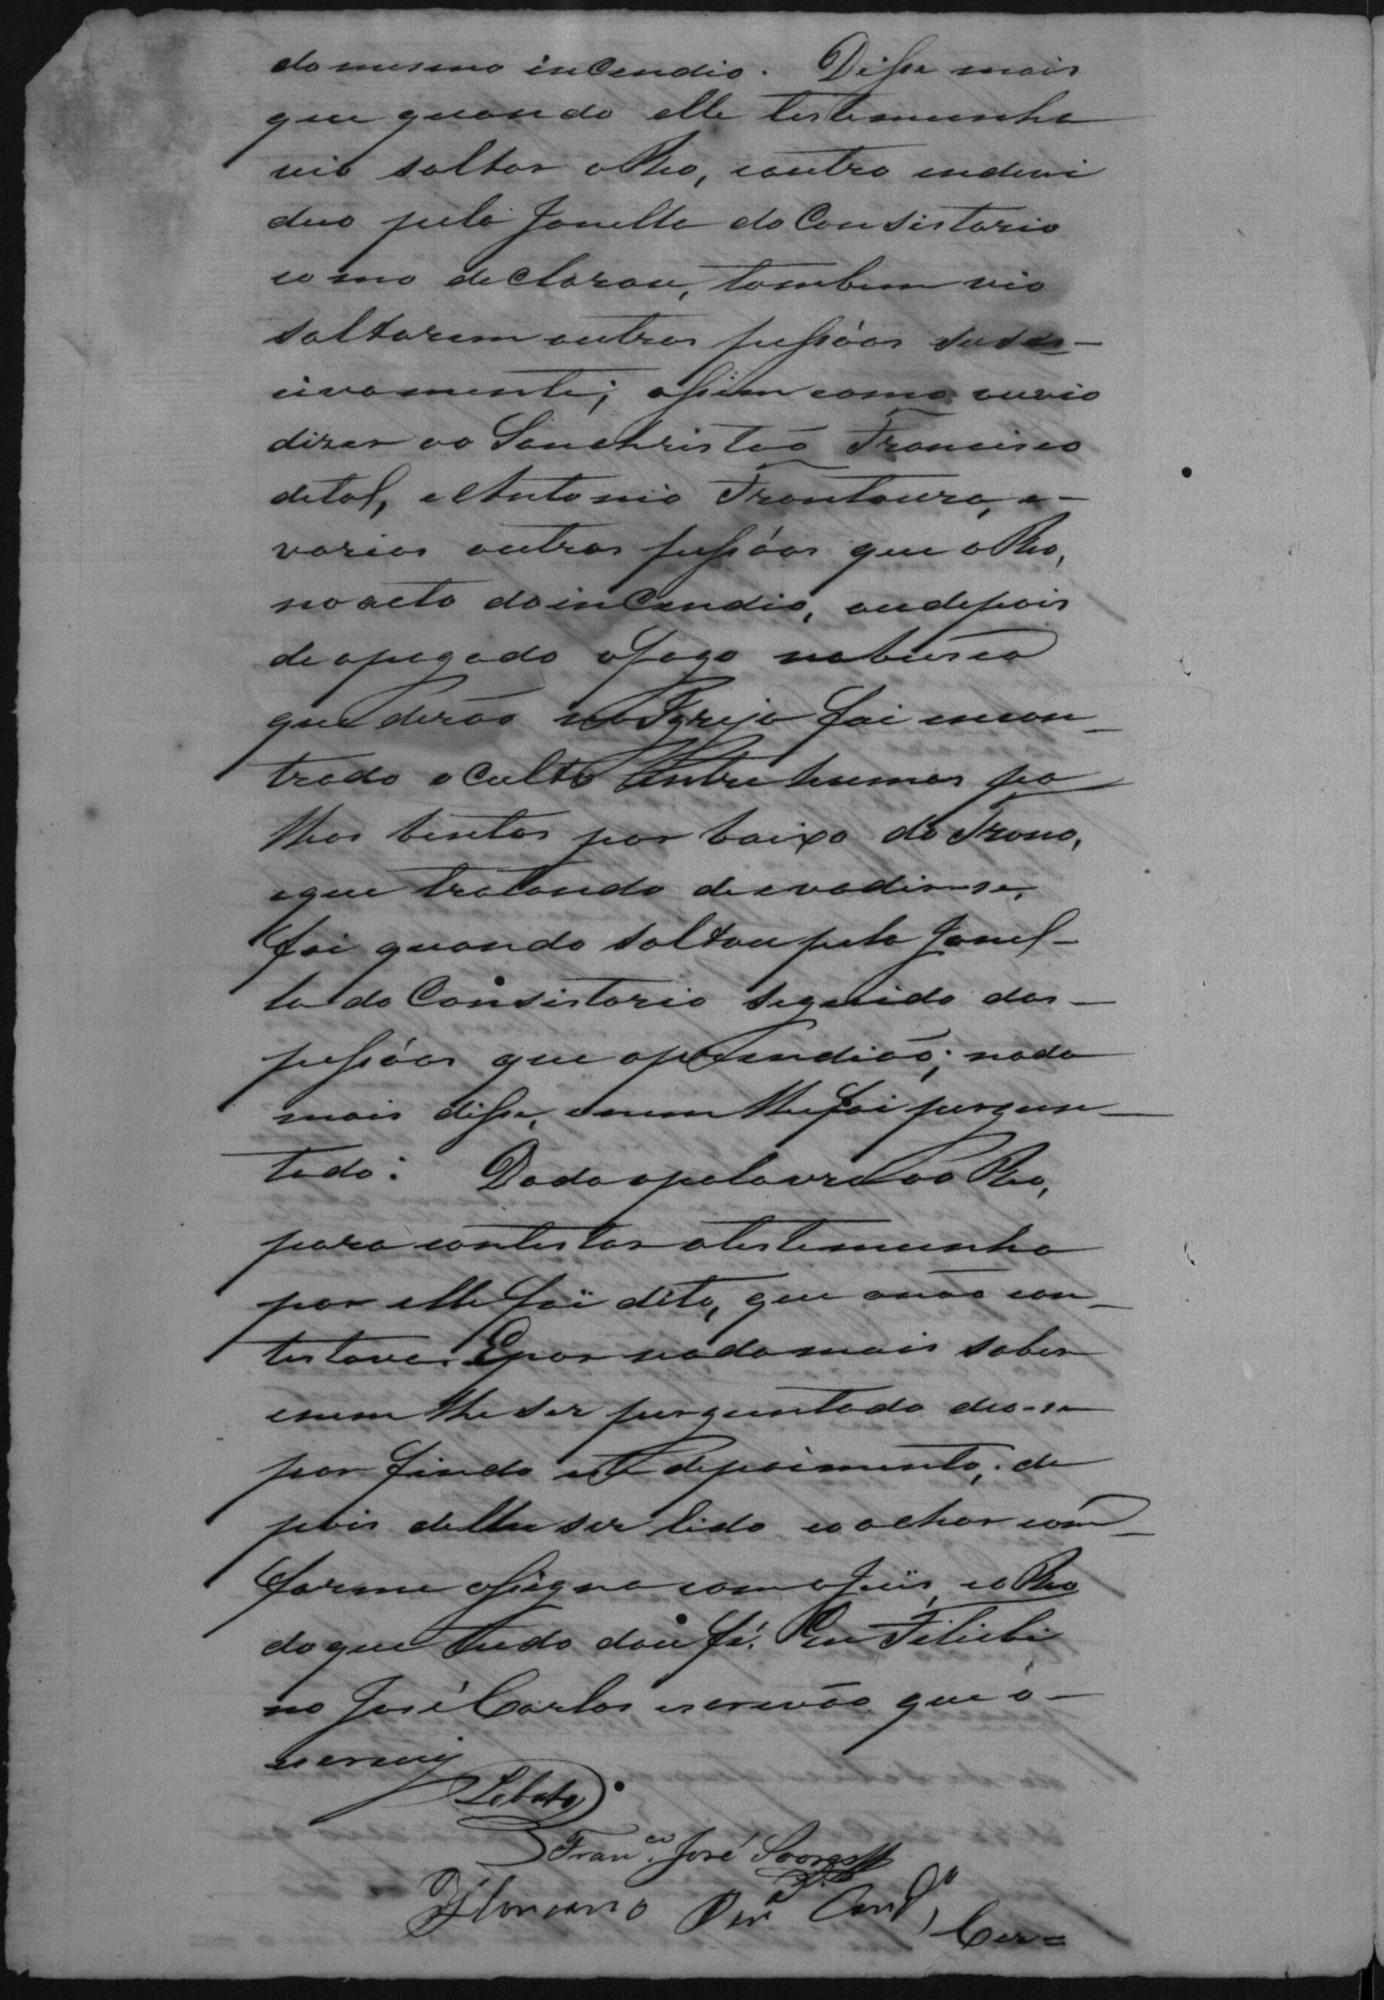 do mesmo incendio. Disse mais
que quando elle testemunha
vio saltar o Reo, e outro indevi
duo pela Janella do Consistorio
como declarou, tambem vio
saltarem outras pessôas suces-
civamente; assim como ouvio
dizer ao Sanchristão Francisco
de tal, e Antonio Frontoura, e-
varias outras pessôas que o Reo,
no acto do incendio, ou depois
de apagado o fogo na busca
que derão na Igreja foi encon-
trado oculto entre humas pa
lhas bentas por baixo do Trono,
e que tratando de evadir-se,
foi quando saltou pela Janel-
la do Consistorio seguido das-
pessôas que aprendião; nada
mais disse, e nem lhe foi pergun-
tado: Dada a palavra ao Reo,
para contestar a testemunha
por elle foi dito, que a não con-
testava. E por nada mais saber
e nem lhe ser perguntado deo-se
por findo este depoimento, de
pois delle ser lido e o achar com-
forme assigna com o Juis, e o Reo
do que tudo dou fé. Eu Felisbi
no José Carlos escrevão que o-
escrevy
Lobato
Fran.co José Soares
Floriano Per.a
Cer=